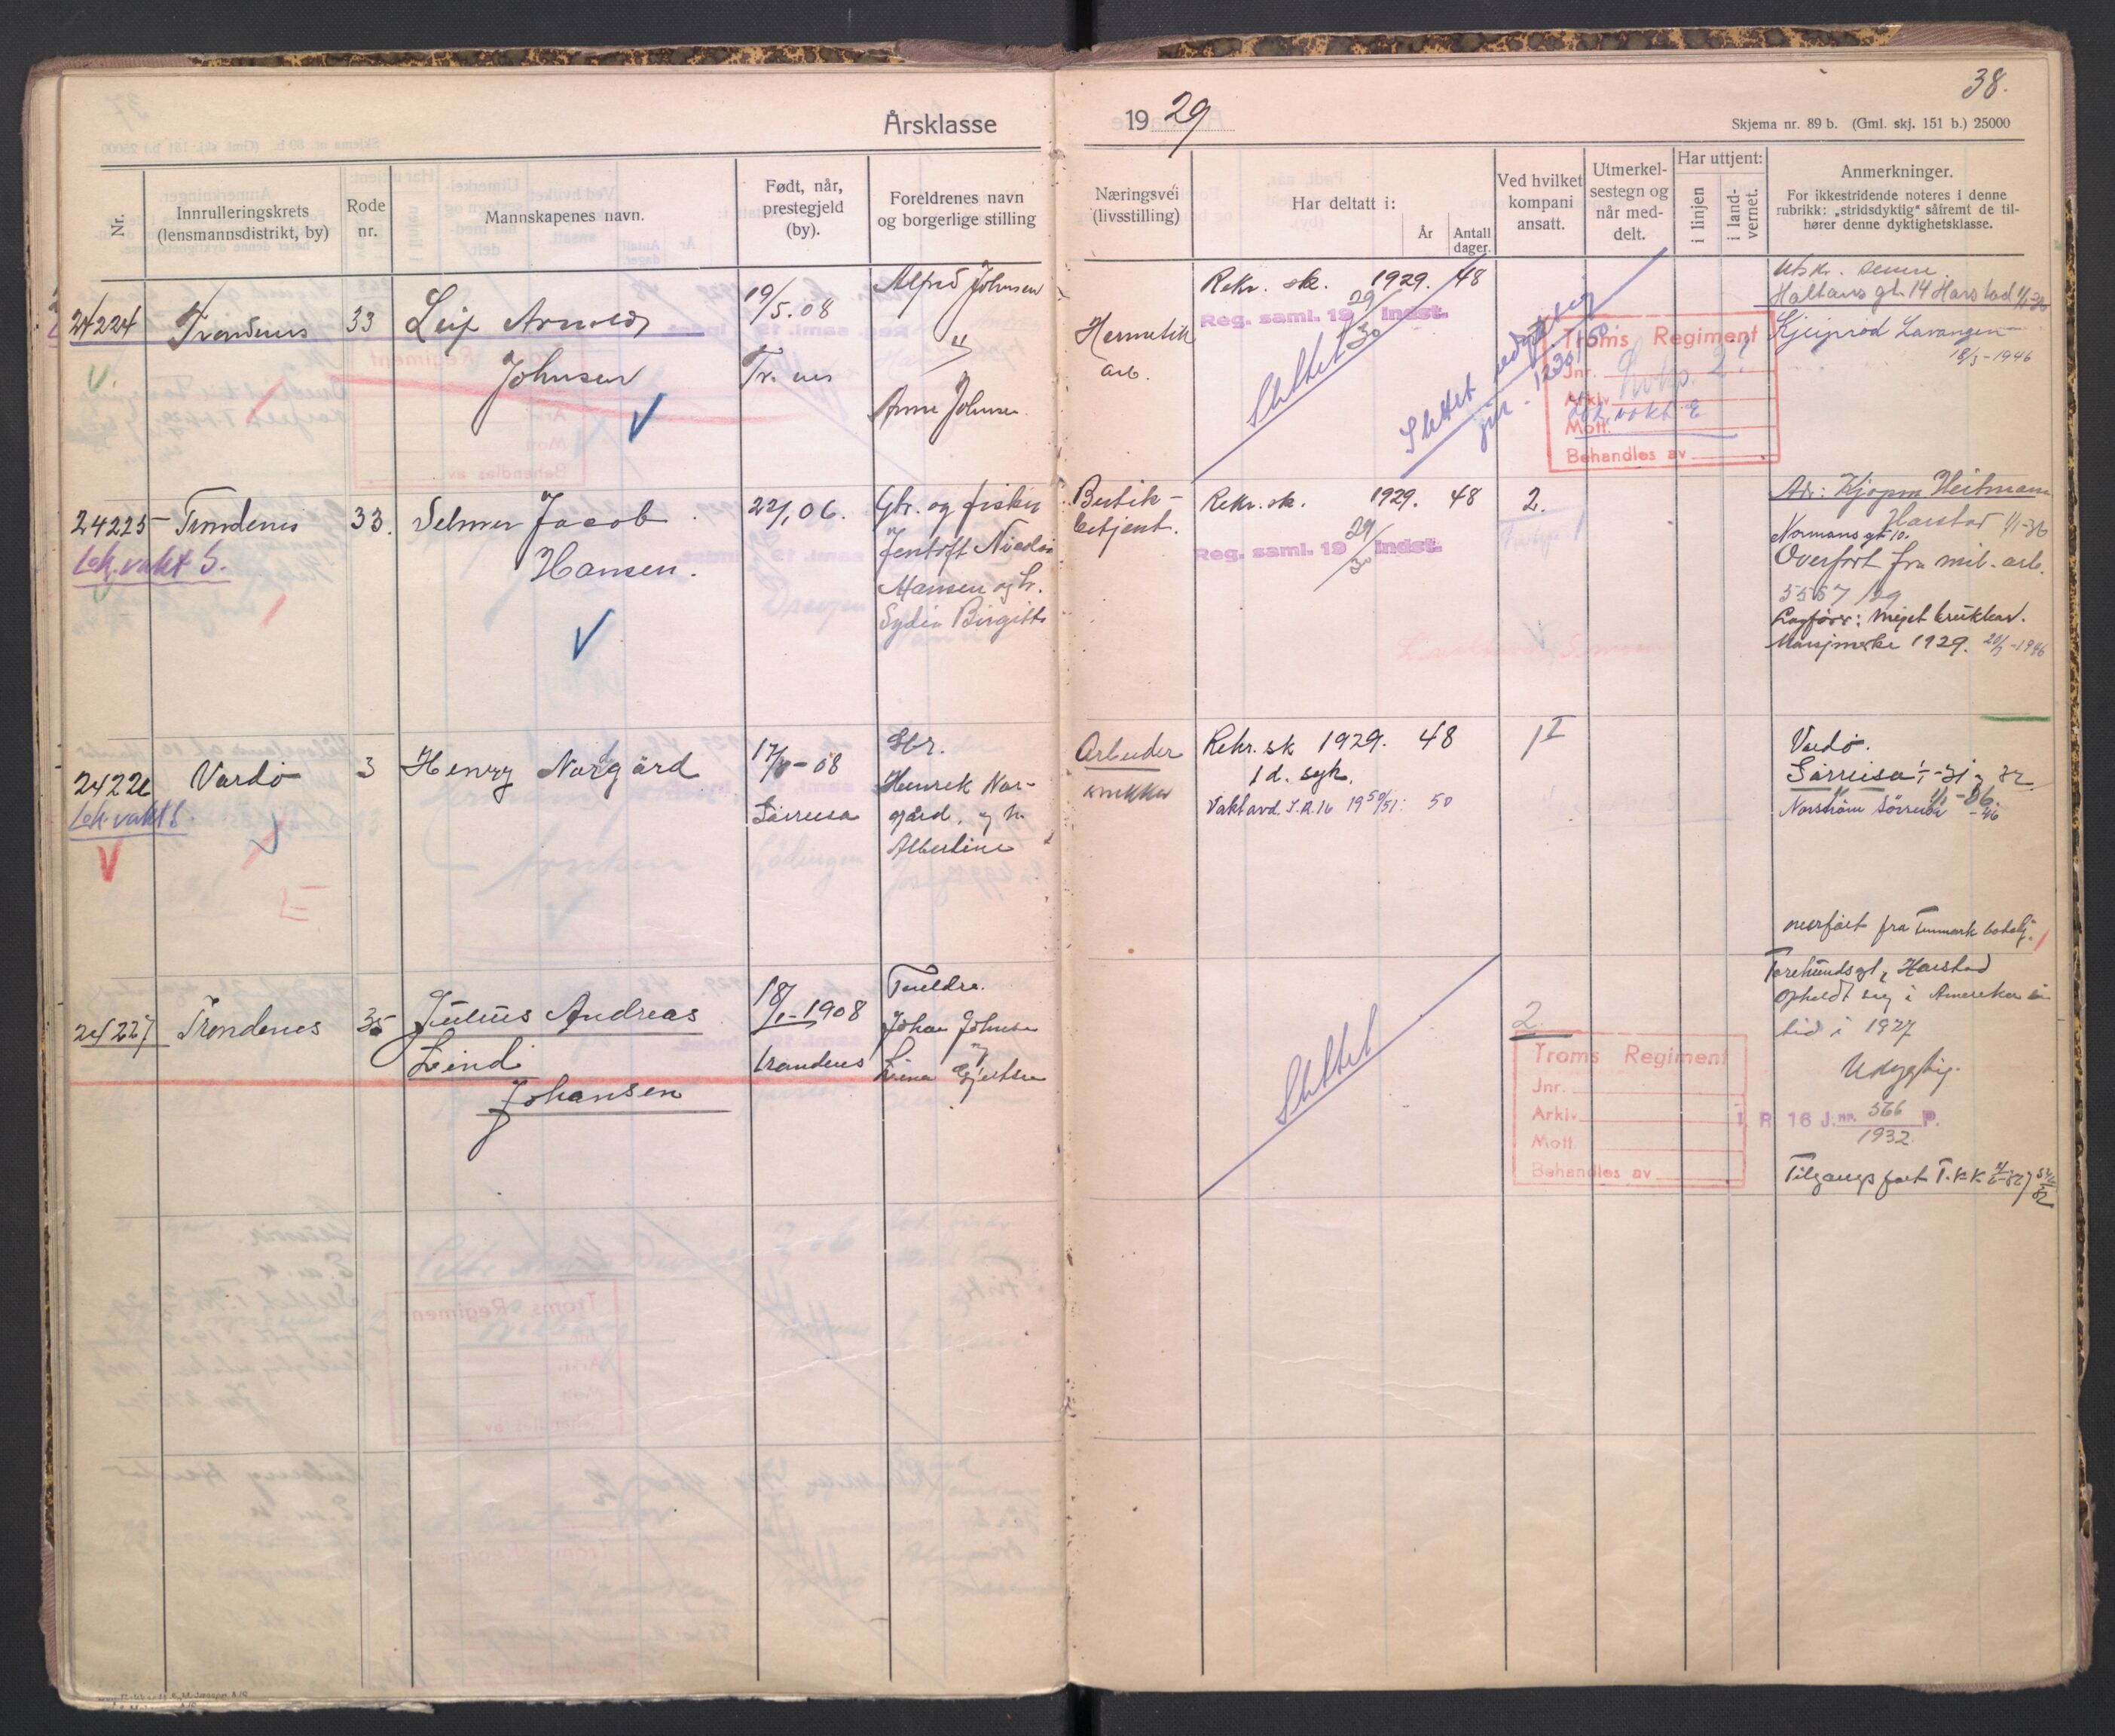 38.
Årsklasse 1929
Skjema nr. 89 b. (Gml. skj. 151 b.) 25000
Nr.
Innrulleringskrets
(lensmannsdistrikt, by)
Rode
nr.
Mannskapenes navn.
Født, når,
prestegjeld
(by).
Foreldrenes navn
og borgerlige stilling
Næringsvei
(livsstilling)
Har deltatt i:
År
Antall
dager.
Ved hvilket
kompani
ansatt.
Utmerkel-
sestegn og
når med-
delt.
Har uttjent:
i linjen
i land-
vernet.
Anmerkninger.
For ikkestridende noteres i denne
rubrikk: „stridsdyktig“ såfremt de til-
hører denne dyktighetsklasse.
24224 Trondenes 33 Leif Arnold
Johnsen
19/5.08
Tr. nes
Alfred Johnsen
"
Anna Johnsen
Hermetik
arb.
Rekr. sk. 1929. 48
Reg. saml. 19 29/30 indst.
Slettet
Slettet
Troms Regiment
Jnr.
Arkiv
Mott.
Behandles av
Lok. vakt. 2
14 Harstad 1/1-30
Lavangen
18/3-1946
24225 Trondenes 33. Selmer Jacob
Hansen.
Lok. vakt S.
22/1.06.
Gbr. og fisker
Jentoft Nicolai
Hansen og h.
Sydia Birgitte
Butik-
betjent.
Rekr. sk. 1929. 48
2.
Reg. saml. 19 29/30 indst.
Adr: Kjøpm Heitmann
Harstad 1/1-30
Normans gt 10.
Overført fra mil. arb.
5557/29
Lagfører: Meget brukbar.
Marsjmerke 1929. 20/3-1946
24226 Vardø 3 Henry Norgård
Lok. vakt S.
17/8-08
Sørreisa
Gbr.
Henrik Nor-
gård, og h.
Albertine
Arbeider
snekker
Rekr. sk 1929. 48
1 d. syk.
Vaktavd. I.R. 16 1950/51: 50
1 I
Vardø.
Sørreisa 1/1-31 32
1/1-36.
Sørreisa -46
overført fra Finnmark batalj.
24227 Trondenes 35 Julius Andreas
Leind
Johansen
18/1-1908
Trondenes
Foreldre.
Johan Johnsen
og
Lina Gjertsen
Slettet
2.
Troms Regiment
Jnr.
Arkiv.
Mott
Behandles av
Harstad
Opholdt seg i Amerika
tid i 1927
Udyktig.
I. R. 16 J.nr. 566 P.
1932
Tilgangsført T.K.K.